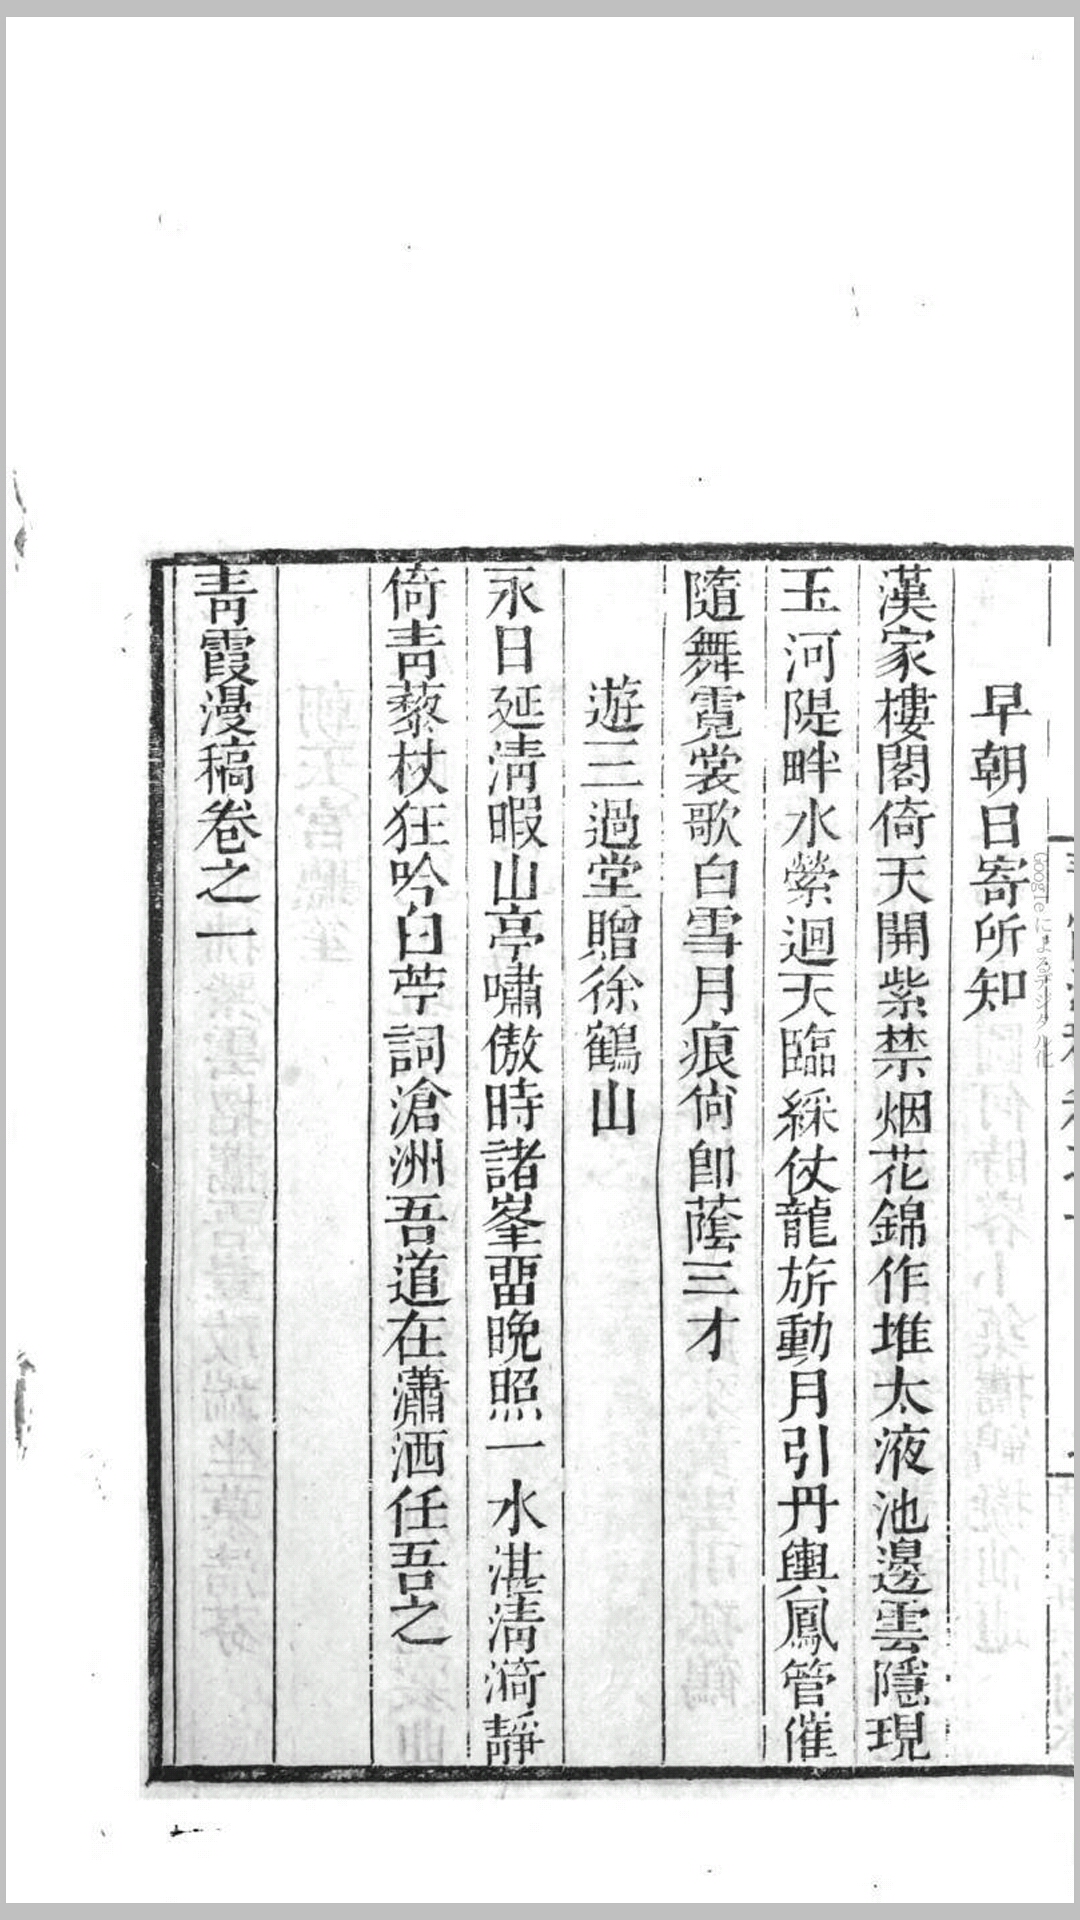 早朝日寄所知
漢家樓閣倚天開紫禁烟花錦作堆太液池邊雲隱現
玉河隄畔水縈迴天臨綵仗龍旂動月引丹輿鳳管催
隨舞霓裳歌白雪月痕尙卽蔭三才
遊三過堂贈徐鶴山
永日延淸暇山亭嘯傲時諸峯畱晚照一水湛淸漪靜
倚靑藜杖狂吟白苧詞滄洲吾道在瀟洒任吾之
靑霞漫稿卷之一
Google によるデジタル化